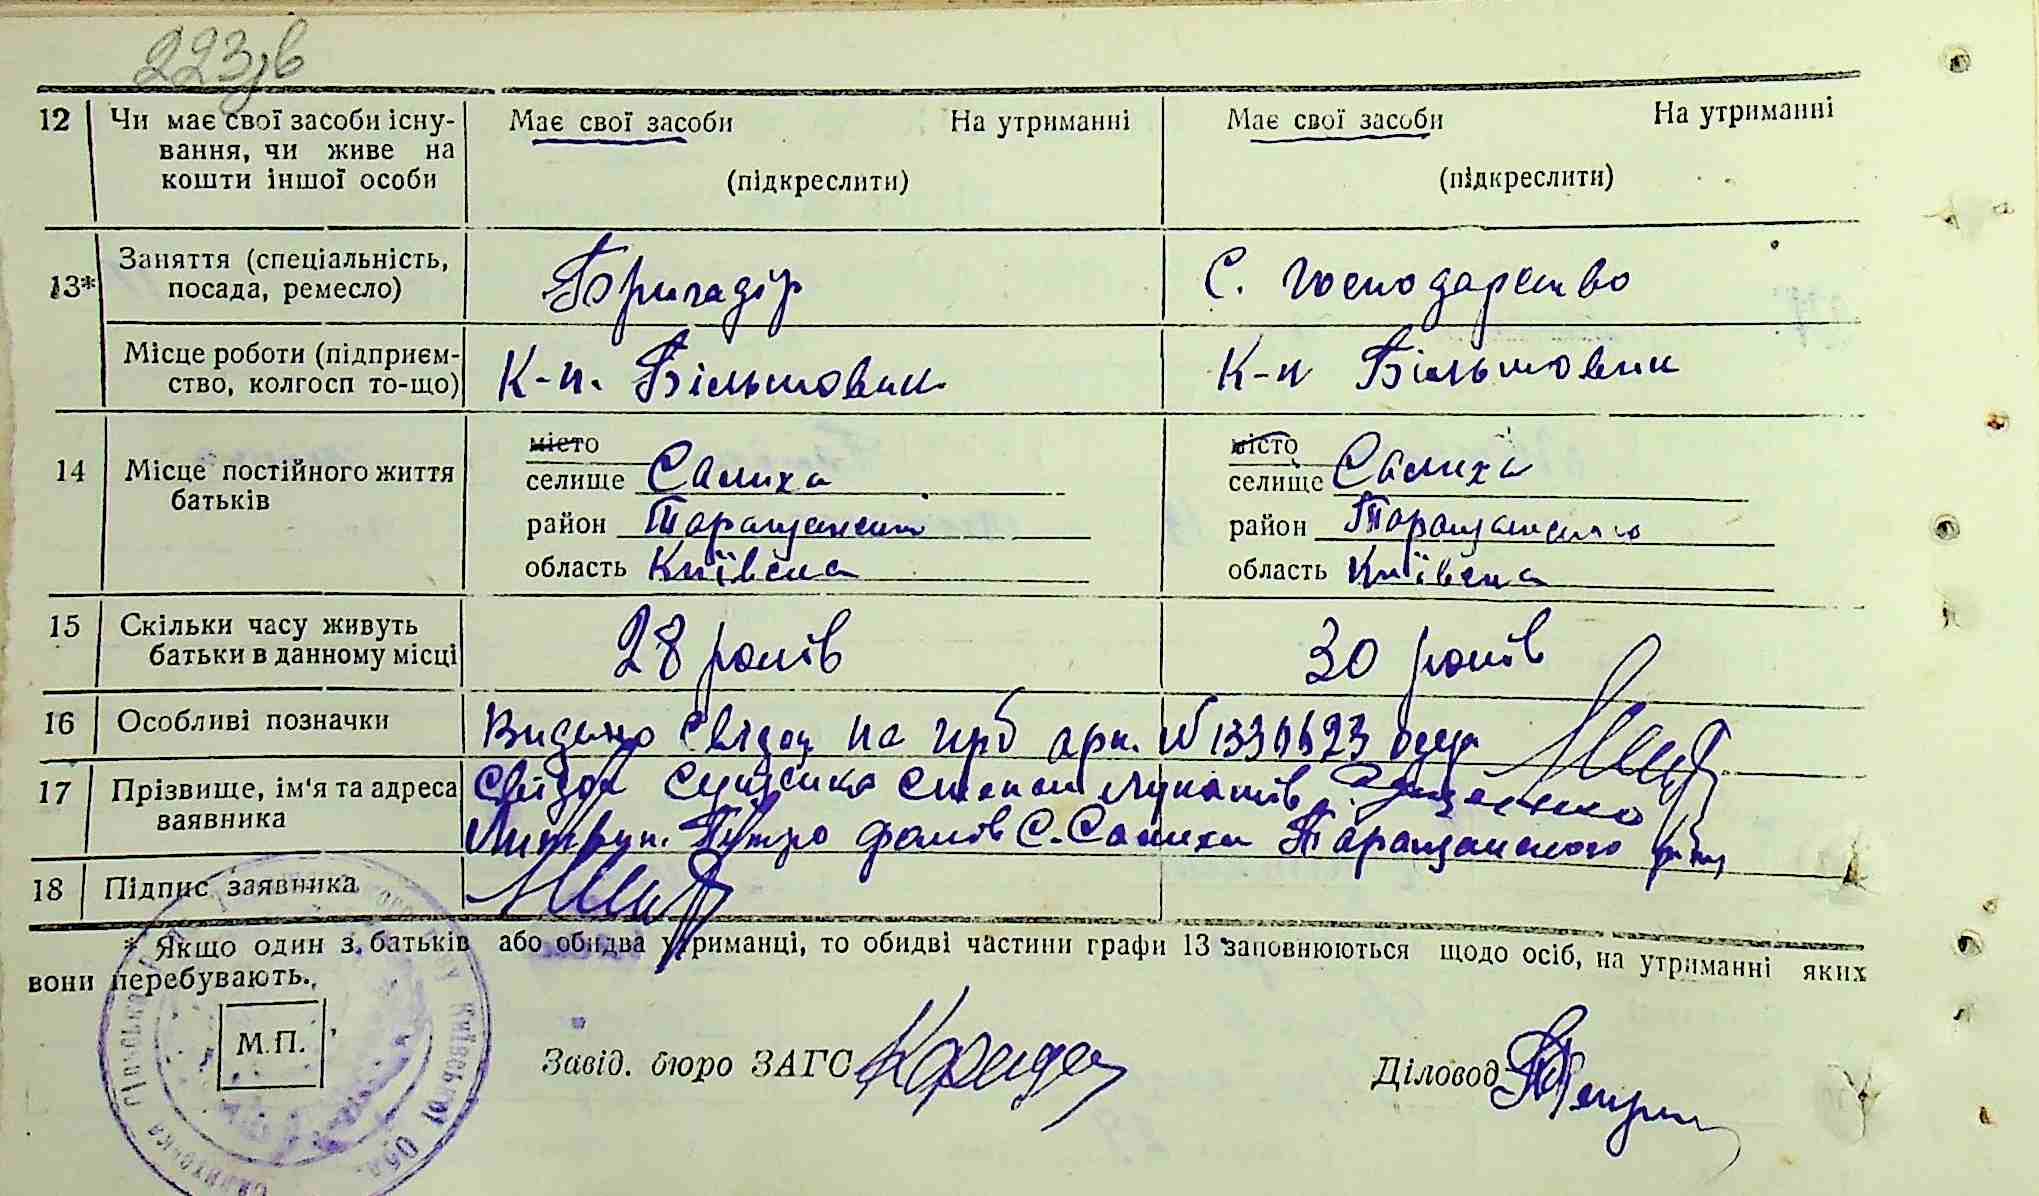 223зв
12 Чи має свої засоби існу-
вання, чи живе на
кошти іншої особи
Має свої засоби На утриманні
(підкреслити)
Має свої засоби На утриманні
(підкреслити)
13* Заняття (спеціальність,
посада, ремесло)
Бригадір
С. господарство
Місце роботи (підприєм-
ство, колгосп то-що)
К-п. Більшовик
К-п Більшовик
14 Місце постійного життя
батьків
місто
селище Салиха
район Таращанськ
область Київська
місто
селище Салиха
район Таращанського
область Київська
15 Скільки часу живуть
батьки в данному місці
28 років
30 років
16 Особливі позначки
Видано свідоц на
17 Прізвище, ім'я та адреса
заявника
Свідок
Петро с. Салихи Таращанського
18 Підпис заявника
* Якщо один з батьків або обидва утриманці, то обидві частини графи 13 заповнюються щодо осіб, на утриманні яких
вони перебувають.
М.П.
Київської Обл.
Завід. бюро ЗАГС
Діловод